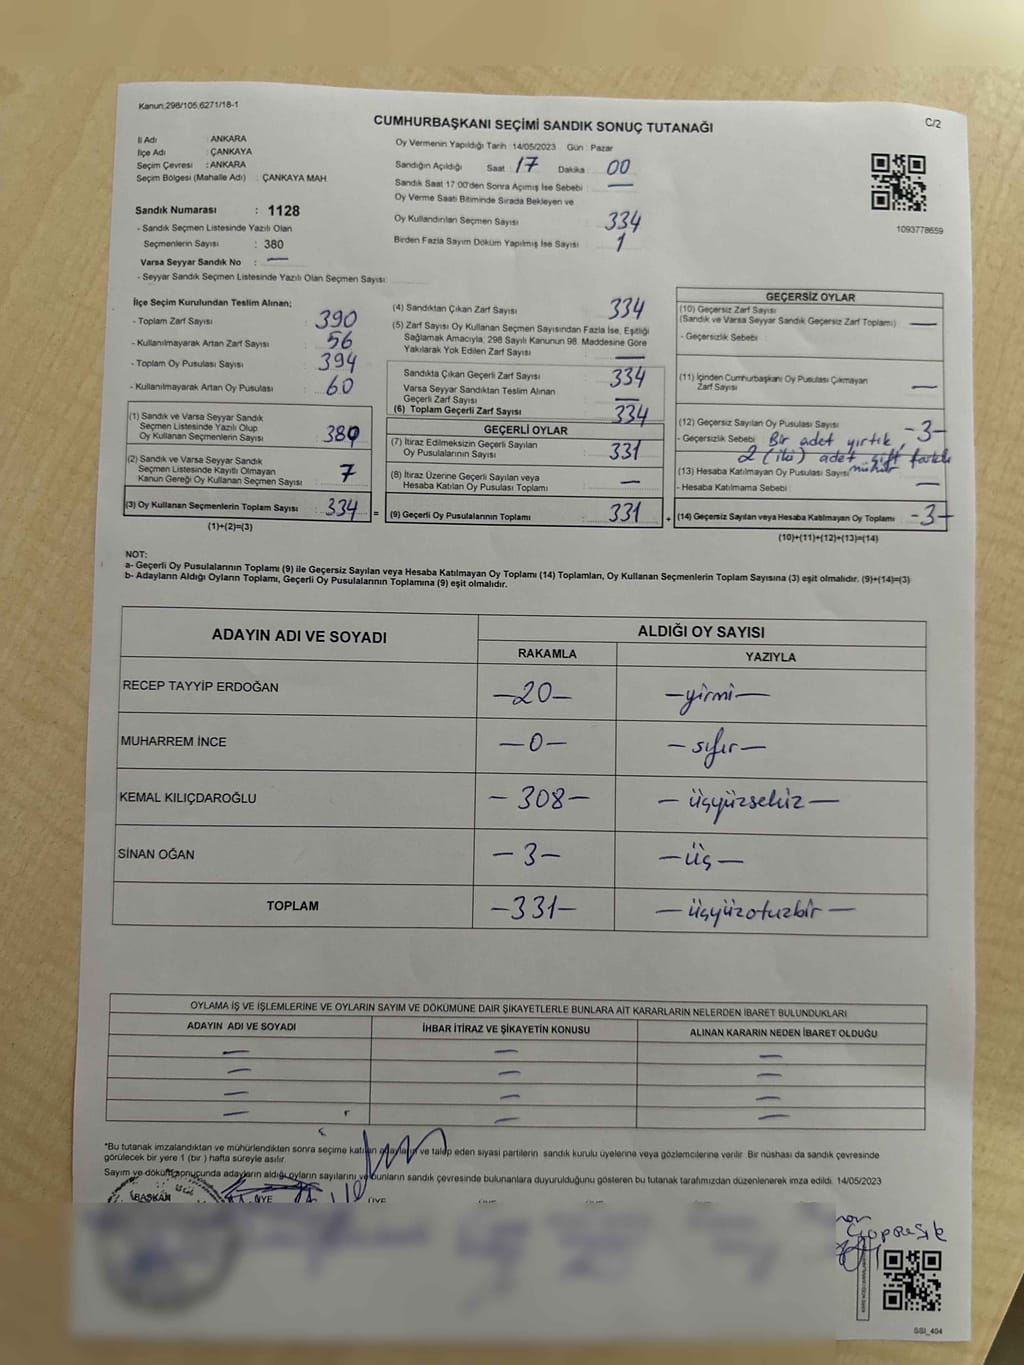 Kanun:298/105,6271/18-1
C/2
CUMHURBAŞKANI SEÇİMİ SANDIK SONUÇ TUTANAĞI
İl Adı : ANKARA
İlçe Adı : ÇANKAYA
Seçim Çevresi : ANKARA
Seçim Bölgesi (Mahalle Adı) : ÇANKAYA MAH
Sandık Numarası : 1128
- Sandık Seçmen Listesinde Yazılı Olan
Seçmenlerin Sayısı : 380
Varsa Seyyar Sandık No : —
- Seyyar Sandık Seçmen Listesinde Yazılı Olan Seçmen Sayısı:
Oy Vermenin Yapıldığı Tarih 14/05/2023 Gün : Pazar
Sandığın Açıldığı Saat : 17 Dakika : 00
Sandık Saat 17:00'den Sonra Açımış İse Sebebi : —
Oy Verme Saati Bitiminde Sırada Bekleyen ve
Oy Kullandırılan Seçmen Sayısı 334
Birden Fazla Sayım Döküm Yapılmış İse Sayısı 1
1093778659
İlçe Seçim Kurulundan Teslim Alınan;
- Toplam Zarf Sayısı : 390
- Kullanılmayarak Artan Zarf Sayısı : 56
- Toplam Oy Pusulası Sayısı : 394
- Kullanılmayarak Artan Oy Pusulası : 60
(1) Sandık ve Varsa Seyyar Sandık
Seçmen Listesinde Yazılı Olup
Oy Kullanan Seçmenlerin Sayısı : 380
(2) Sandık ve Varsa Seyyar Sandık
Seçmen Listesinde Kayıtlı Olmayan
Kanun Gereği Oy Kullanan Seçmen Sayısı : 7
(3) Oy Kullanan Seçmenlerin Toplam Sayısı : 334 =
(1)+(2)=(3)
(4) Sandıktan Çıkan Zarf Sayısı : 334
(5) Zarf Sayısı Oy Kullanan Seçmen Sayısından Fazla İse, Eşitliği
Sağlamak Amacıyla, 298 Sayılı Kanunun 98. Maddesine Göre
Yakılarak Yok Edilen Zarf Sayısı : —
Sandıkta Çıkan Geçerli Zarf Sayısı : 334
Varsa Seyyar Sandıktan Teslim Alınan
Geçerli Zarf Sayısı : —
(6) Toplam Geçerli Zarf Sayısı : 334
GEÇERLİ OYLAR
(7) İtiraz Edilmeksizin Geçerli Sayılan
Oy Pusulalarının Sayısı : 331
(8) İtiraz Üzerine Geçerli Sayılan veya
Hesaba Katılan Oy Pusulası Toplamı : —
(9) Geçerli Oy Pusulalarının Toplamı : 331 +
GEÇERSİZ OYLAR
(10) Geçersiz Zarf Sayısı
(Sandık ve Varsa Seyyar Sandık Geçersiz Zarf Toplamı) : —
- Geçersizlik Sebebi :
(11) İçinden Cumhurbaşkanı Oy Pusulası Çıkmayan
Zarf Sayısı : —
(12) Geçersiz Sayılan Oy Pusulası Sayısı : -3-
- Geçersizlik Sebebi : Bir adet yırtık,
2 (iki) adet çift
mühür
(13) Hesaba Katılmayan Oy Pusulası Sayısı : —
- Hesaba Katılmama Sebebi :
(14) Geçersiz Sayılan veya Hesaba Katılmayan Oy Toplamı : -3-
(10)+(11)+(12)+(13)=(14)
NOT:
a- Geçerli Oy Pusulalarının Toplamı (9) ile Geçersiz Sayılan veya Hesaba Katılmayan Oy Toplamı (14) Toplamları, Oy Kullanan Seçmenlerin Toplam Sayısına (3) eşit olmalıdır. (9)+(14)=(3)
b- Adayların Aldığı Oyların Toplamı, Geçerli Oy Pusulalarının Toplamına (9) eşit olmalıdır.
ADAYIN ADI VE SOYADI ALDIĞI OY SAYISI
RAKAMLA YAZIYLA
RECEP TAYYİP ERDOĞAN —20— —yirmi—
MUHARREM İNCE —0— —sıfır—
KEMAL KILIÇDAROĞLU —308— —üçyüzsekiz—
SİNAN OĞAN —3— —üç—
TOPLAM —331— —üçyüzotuzbir—
OYLAMA İŞ VE İŞLEMLERİNE VE OYLARIN SAYIM VE DÖKÜMÜNE DAİR ŞİKAYETLERLE BUNLARA AİT KARARLARIN NELERDEN İBARET BULUNDUKLARI
ADAYIN ADI VE SOYADI İHBAR İTİRAZ VE ŞİKAYETİN KONUSU ALINAN KARARIN NEDEN İBARET OLDUĞU
— — —
— — —
— — —
— — —
*Bu tutanak imzalandıktan ve mühürlendikten sonra seçime katılan adaylara ve talep eden siyasi partilerin sandık kurulu üyelerine veya gözlemcilerine verilir. Bir nüshası da sandık çevresinde
görülecek bir yere 1 (bir ) hafta süreyle asılır.
Sayım ve döküm sonucunda adayların aldığı oyların sayılarını ve bunların sandık çevresinde bulunanlara duyurulduğunu gösteren bu tutanak tarafımızdan düzenlenerek imza edildi. 14/05/2023
BAŞKAN ÜYE ÜYE
SSİ_404